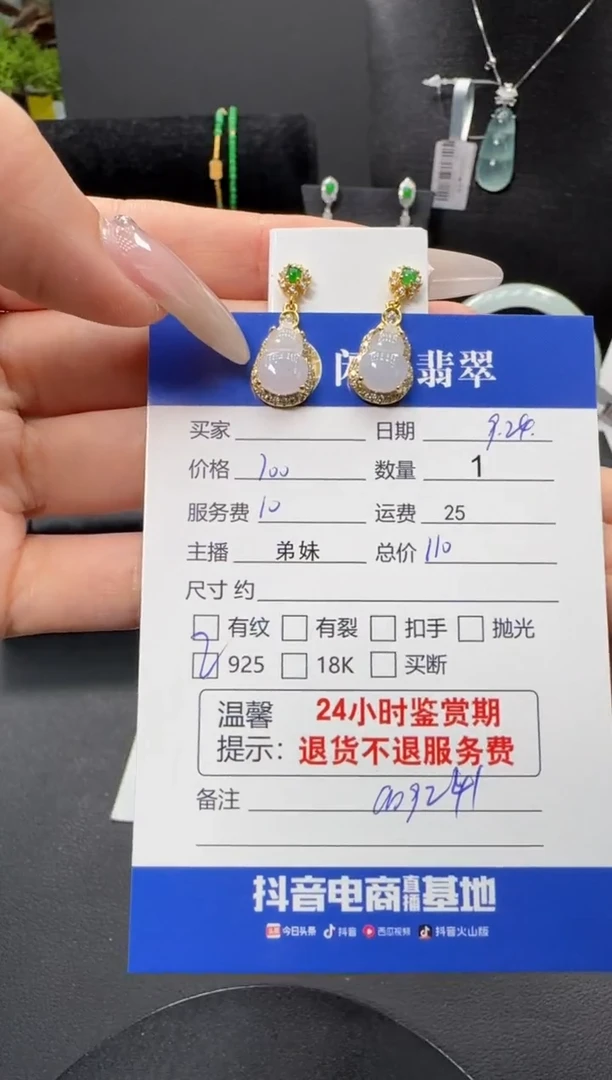 翡翠
买家 日期 9.24.
价格 100 数量 1
服务费 10 运费 25
主播 弟妹 总价 110
尺寸 约
有纹 有裂 扣手 抛光
925 18K 买断
温馨 24小时鉴赏期
提示: 退货不退服务费
备注
抖音电商直播基地
今日头条 抖音 西瓜视频 抖音火山版